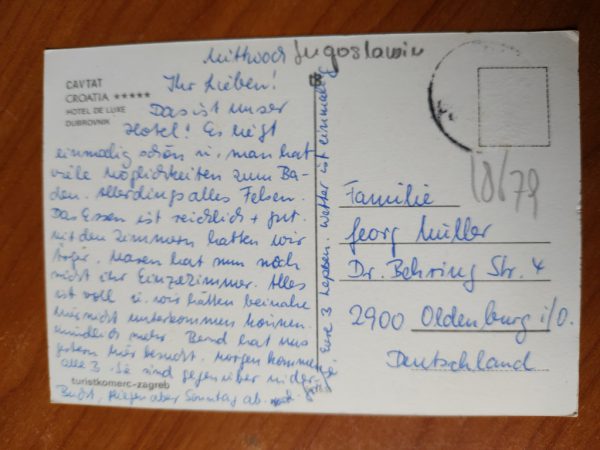 Mittwoch Jugoslawien
CAVTAT
CROATIA *****
HOTEL DE LUXE
DUBROVNIK
Ihr Lieben!
Das ist unser
Hotel! Es liegt
einmalig schön u. man hat
viele Möglichkeiten zum Ba-
den. Allerdings alles Felsen.
Das Essen ist reichlich + gut.
Mit den Zimmern hatten wir
Ärger. Maren hat nun noch
nicht ihr Einzelzimmer. Alles
ist voll u. wir hätten beinahe
hier nicht unterkommen können.
mündlich mehr. Bernd hat uns
gestern hier besucht. Morgen kommen
alle 3. Sie sind gegenüber in der
turistkomerc-zagreb
Bucht, fliegen aber Sonntag ab.
Eure 3 Wetter ist einmalig
10/6 79
Familie
Georg Müller
Dr. Behring Str. 4
2900 Oldenburg i/O.
Deutschland